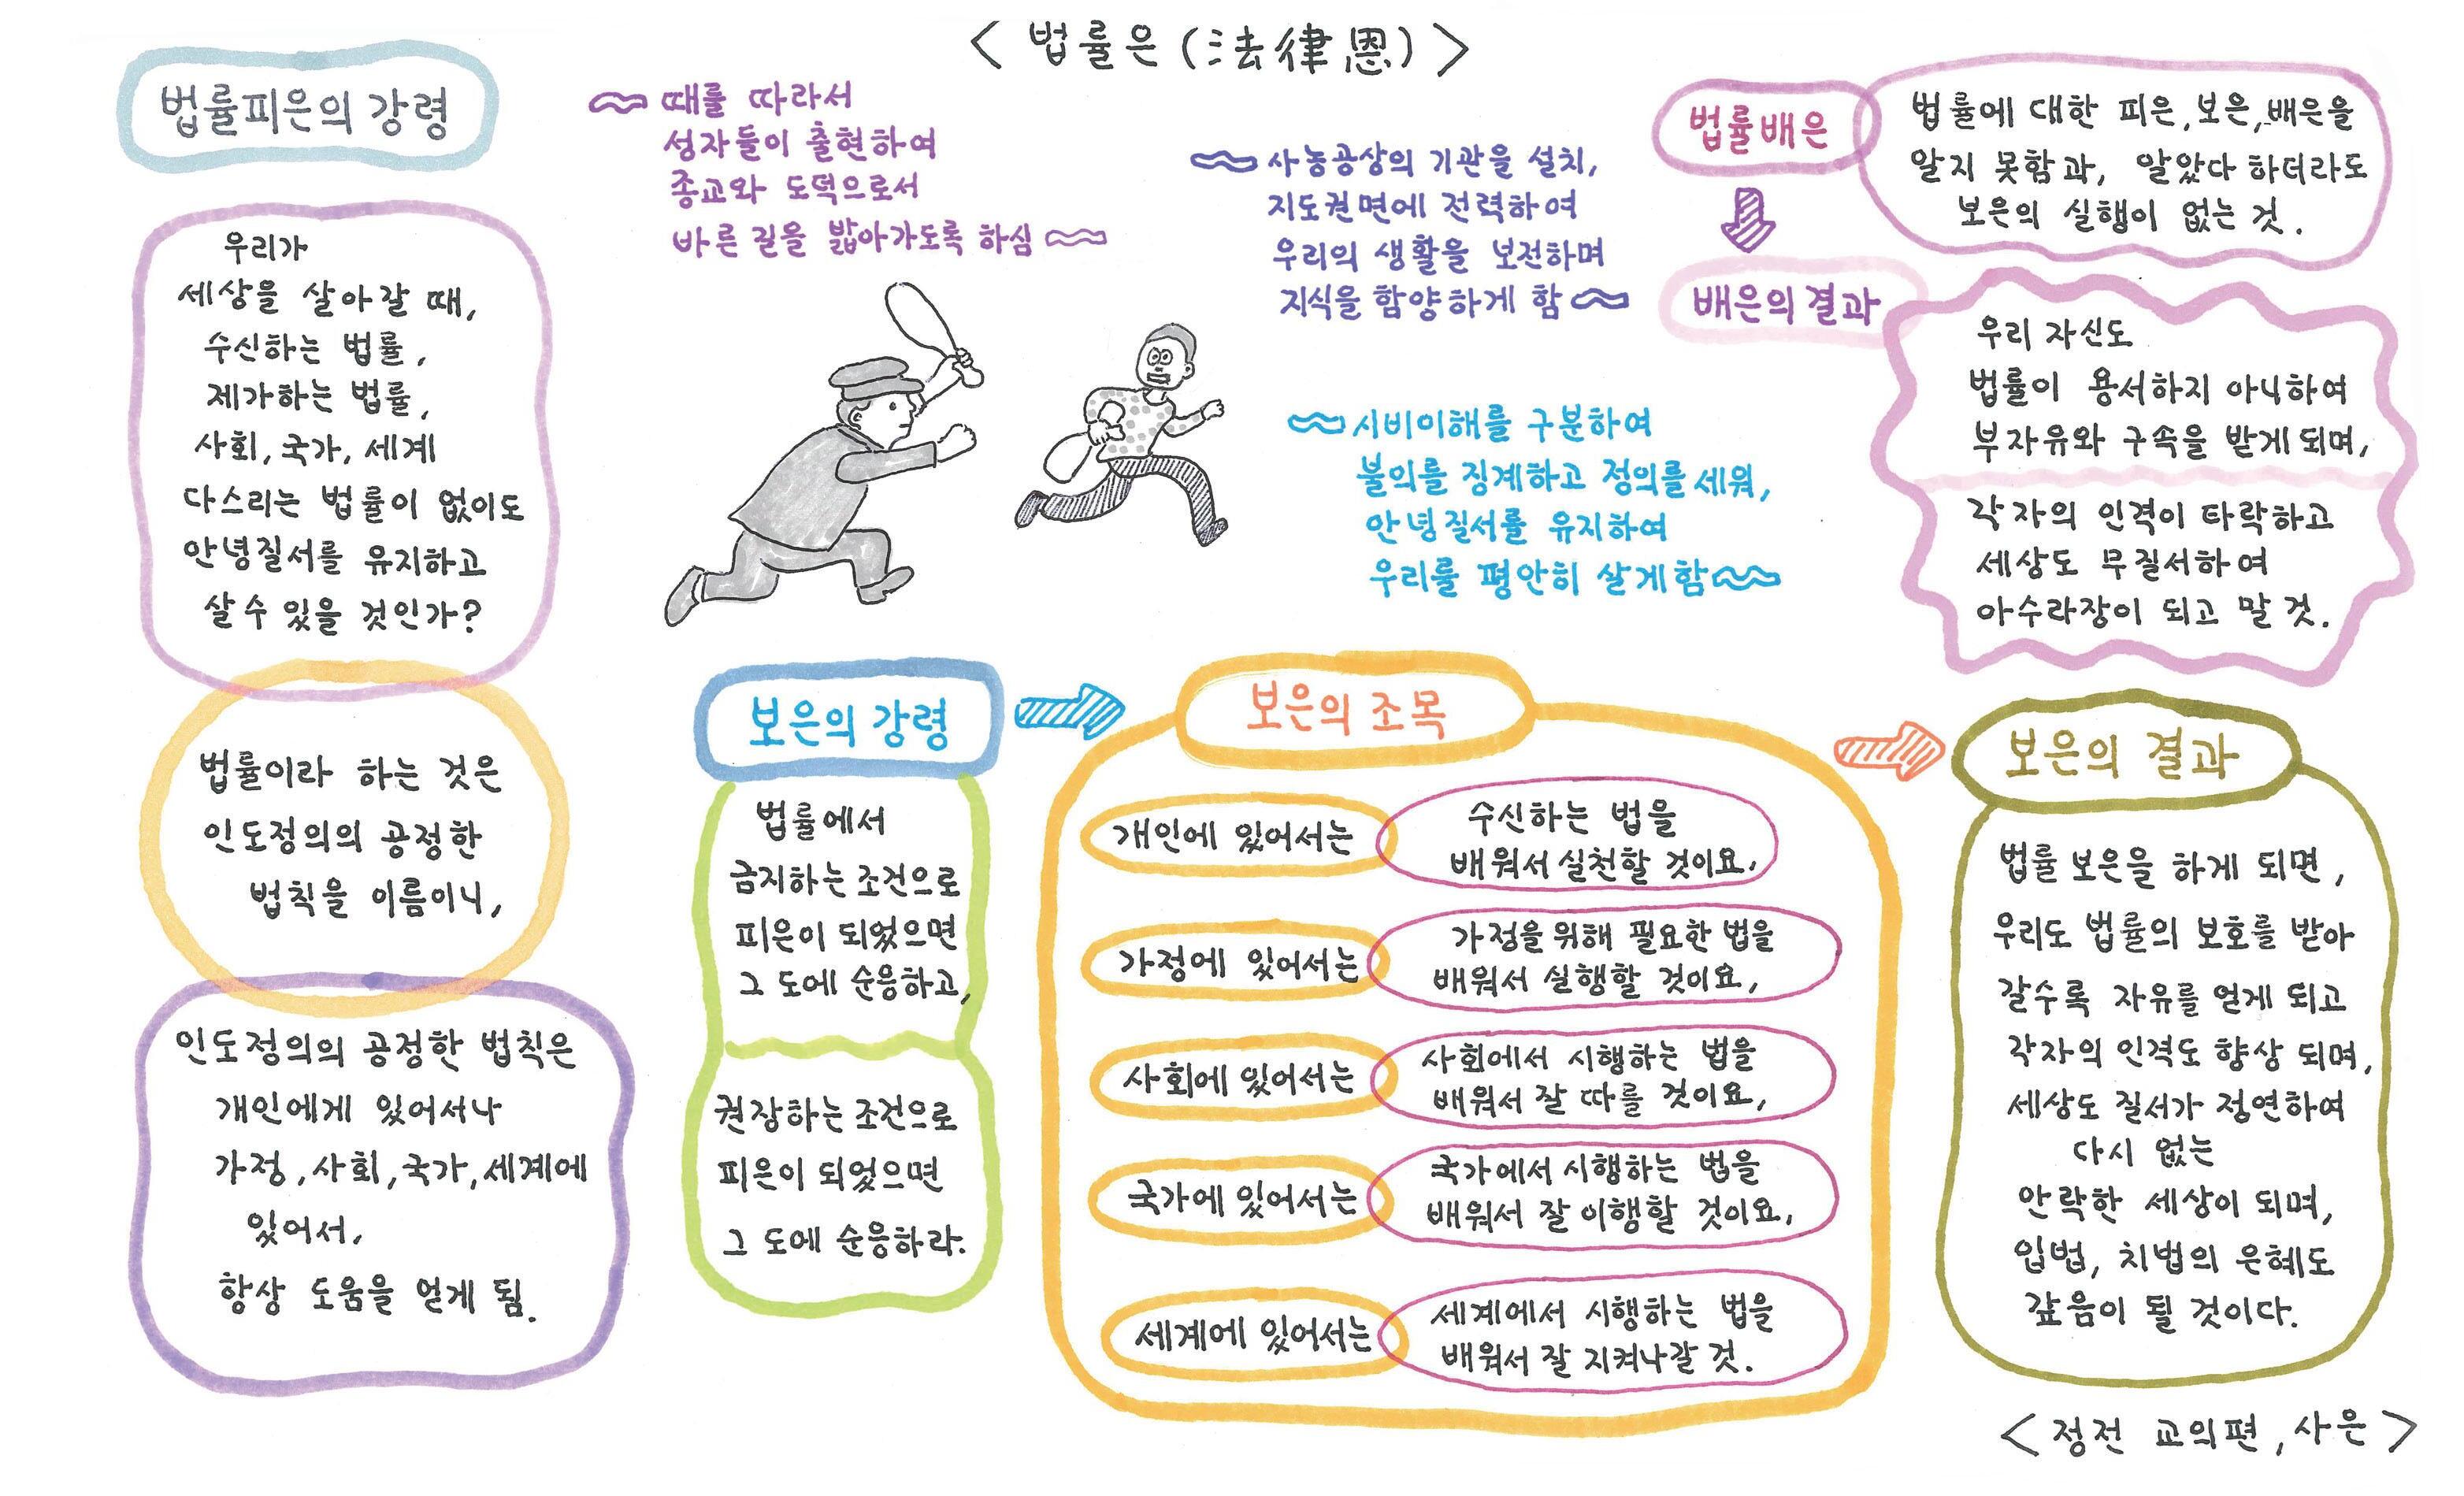 <법률은(:法律恩)>
법률피은의 강령
우리가
세상을 살아갈 때,
수신하는 법률,
제가하는 법률,
사회, 국가, 세계
다스리는 법률이 없이도
안녕질서를 유지하고
살 수 있을 것인가?
법률이라 하는 것은
인도정의의 공정한
법칙을 이름이니,
인도정의의 공정한 법칙은
개인에게 있어서나
가정, 사회, 국가, 세계에
있어서,
항상 도움을 얻게 됨.
~ 때를 따라서
성자들이 출현하여
종교와 도덕으로서
바른 길을 밟아가도록 하심 ~
~ 사농공상의 기관을 설치,
지도권면에 전력하여
우리의 생활을 보전하며
지식을 함양하게 함 ~
~ 시비이해를 구분하여
불의를 징계하고 정의를 세워,
안녕질서를 유지하여
우리를 평안히 살게함 ~
법률배은
법률에 대한 피은, 보은, 배은을
알지 못함과, 알았다 하더라도
보은의 실행이 없는 것.
배은의 결과
우리 자신도
법률이 용서하지 아니하여
부자유와 구속을 받게 되며,
각자의 인격이 타락하고
세상도 무질서하여
아수라장이 되고 말 것.
보은의 강령
법률에서
금지하는 조건으로
피은이 되었으면
그 도에 순응하고,
권장하는 조건으로
피은이 되었으면
그 도에 순응하라.
보은의 조목
개인에 있어서는
수신하는 법을
배워서 실천할 것이요,
가정에 있어서는
가정을 위해 필요한 법을
배워서 실행할 것이요,
사회에 있어서는
사회에서 시행하는 법을
배워서 잘 따를 것이요,
국가에 있어서는
국가에서 시행하는 법을
배워서 잘 이행할 것이요,
세계에 있어서는
세계에서 시행하는 법을
배워서 잘 지켜나갈 것.
보은의 결과
법률 보은을 하게 되면,
우리도 법률의 보호를 받아
갈수록 자유를 얻게 되고
각자의 인격도 향상 되며,
세상도 질서가 정연하여
다시 없는
안락한 세상이 되며,
입법, 치법의 은혜도
갚음이 될 것이다.
<정전 교의편, 사은>